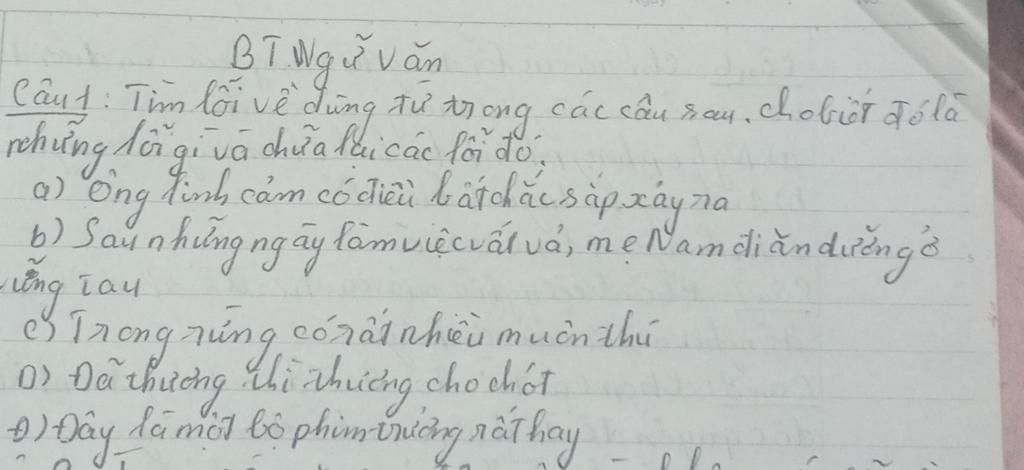 BT.Ngữ văn
Câu1: Tìm lỗi về dùng từ trong các câu sau. cho biết đó là
những lỗi gì và chữa lại các lỗi đó.
a) Ông linh cảm có điều bất chắc sắp xảy ra
b) Sau những ngày làm việc vất vả, mẹ Nam đi ăn dưỡng ở
vũng Tàu
c) Trong rừng có rất nhiều muôn thú
D) Đã thương thì thương cho chót
Đ) Đây là một bộ phim trưởng rất hay